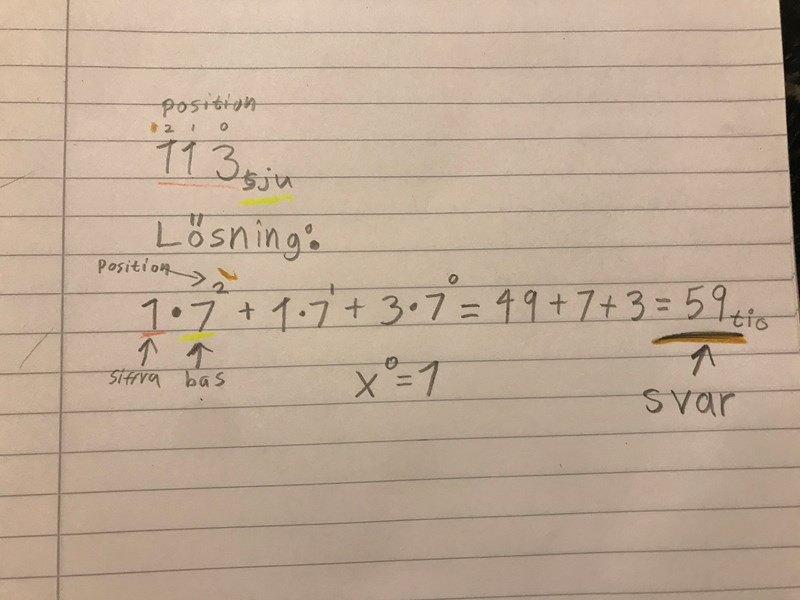 position
2 1 0
113sju
Lösning:
Position
1·7² + 1·7¹ + 3·7⁰ = 49 + 7 + 3 = 59tio
siffra bas
x⁰ = 1
svar